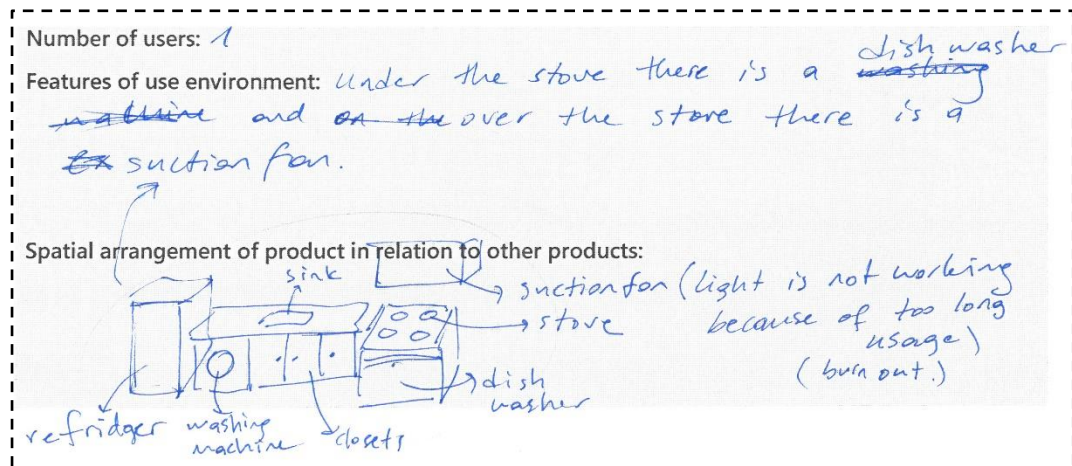 Number of users: 1
dish washer
Features of use environment: Under the stove there is a washing
machine and on the over the stove there is a
Ex suction fan.
Spatial arrangement of product in relation to other products:
sink
suction fan (light is not working
stove because of too long
usage)
dish (burn out.)
washer
refridger washing closets
machine